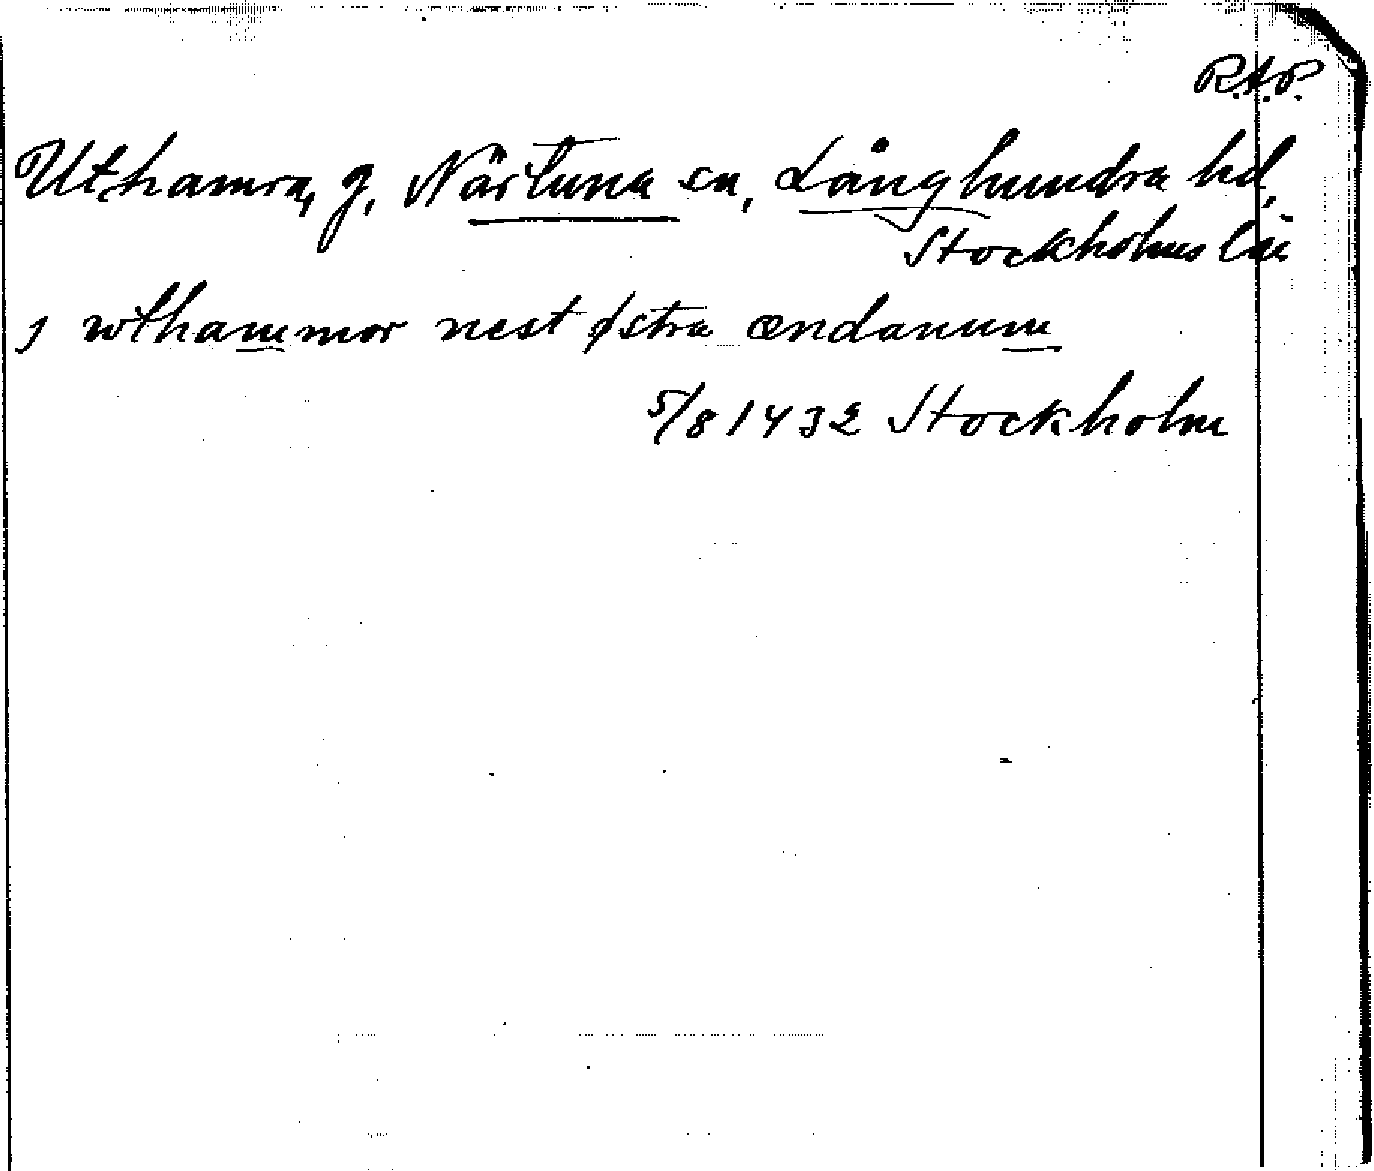 R.A.P.
Uthamra, g, Närtuna sn, Långhundra hd,
Stockholms län
j wthammor nest østra ændanum
5/8 1432 Stockholm